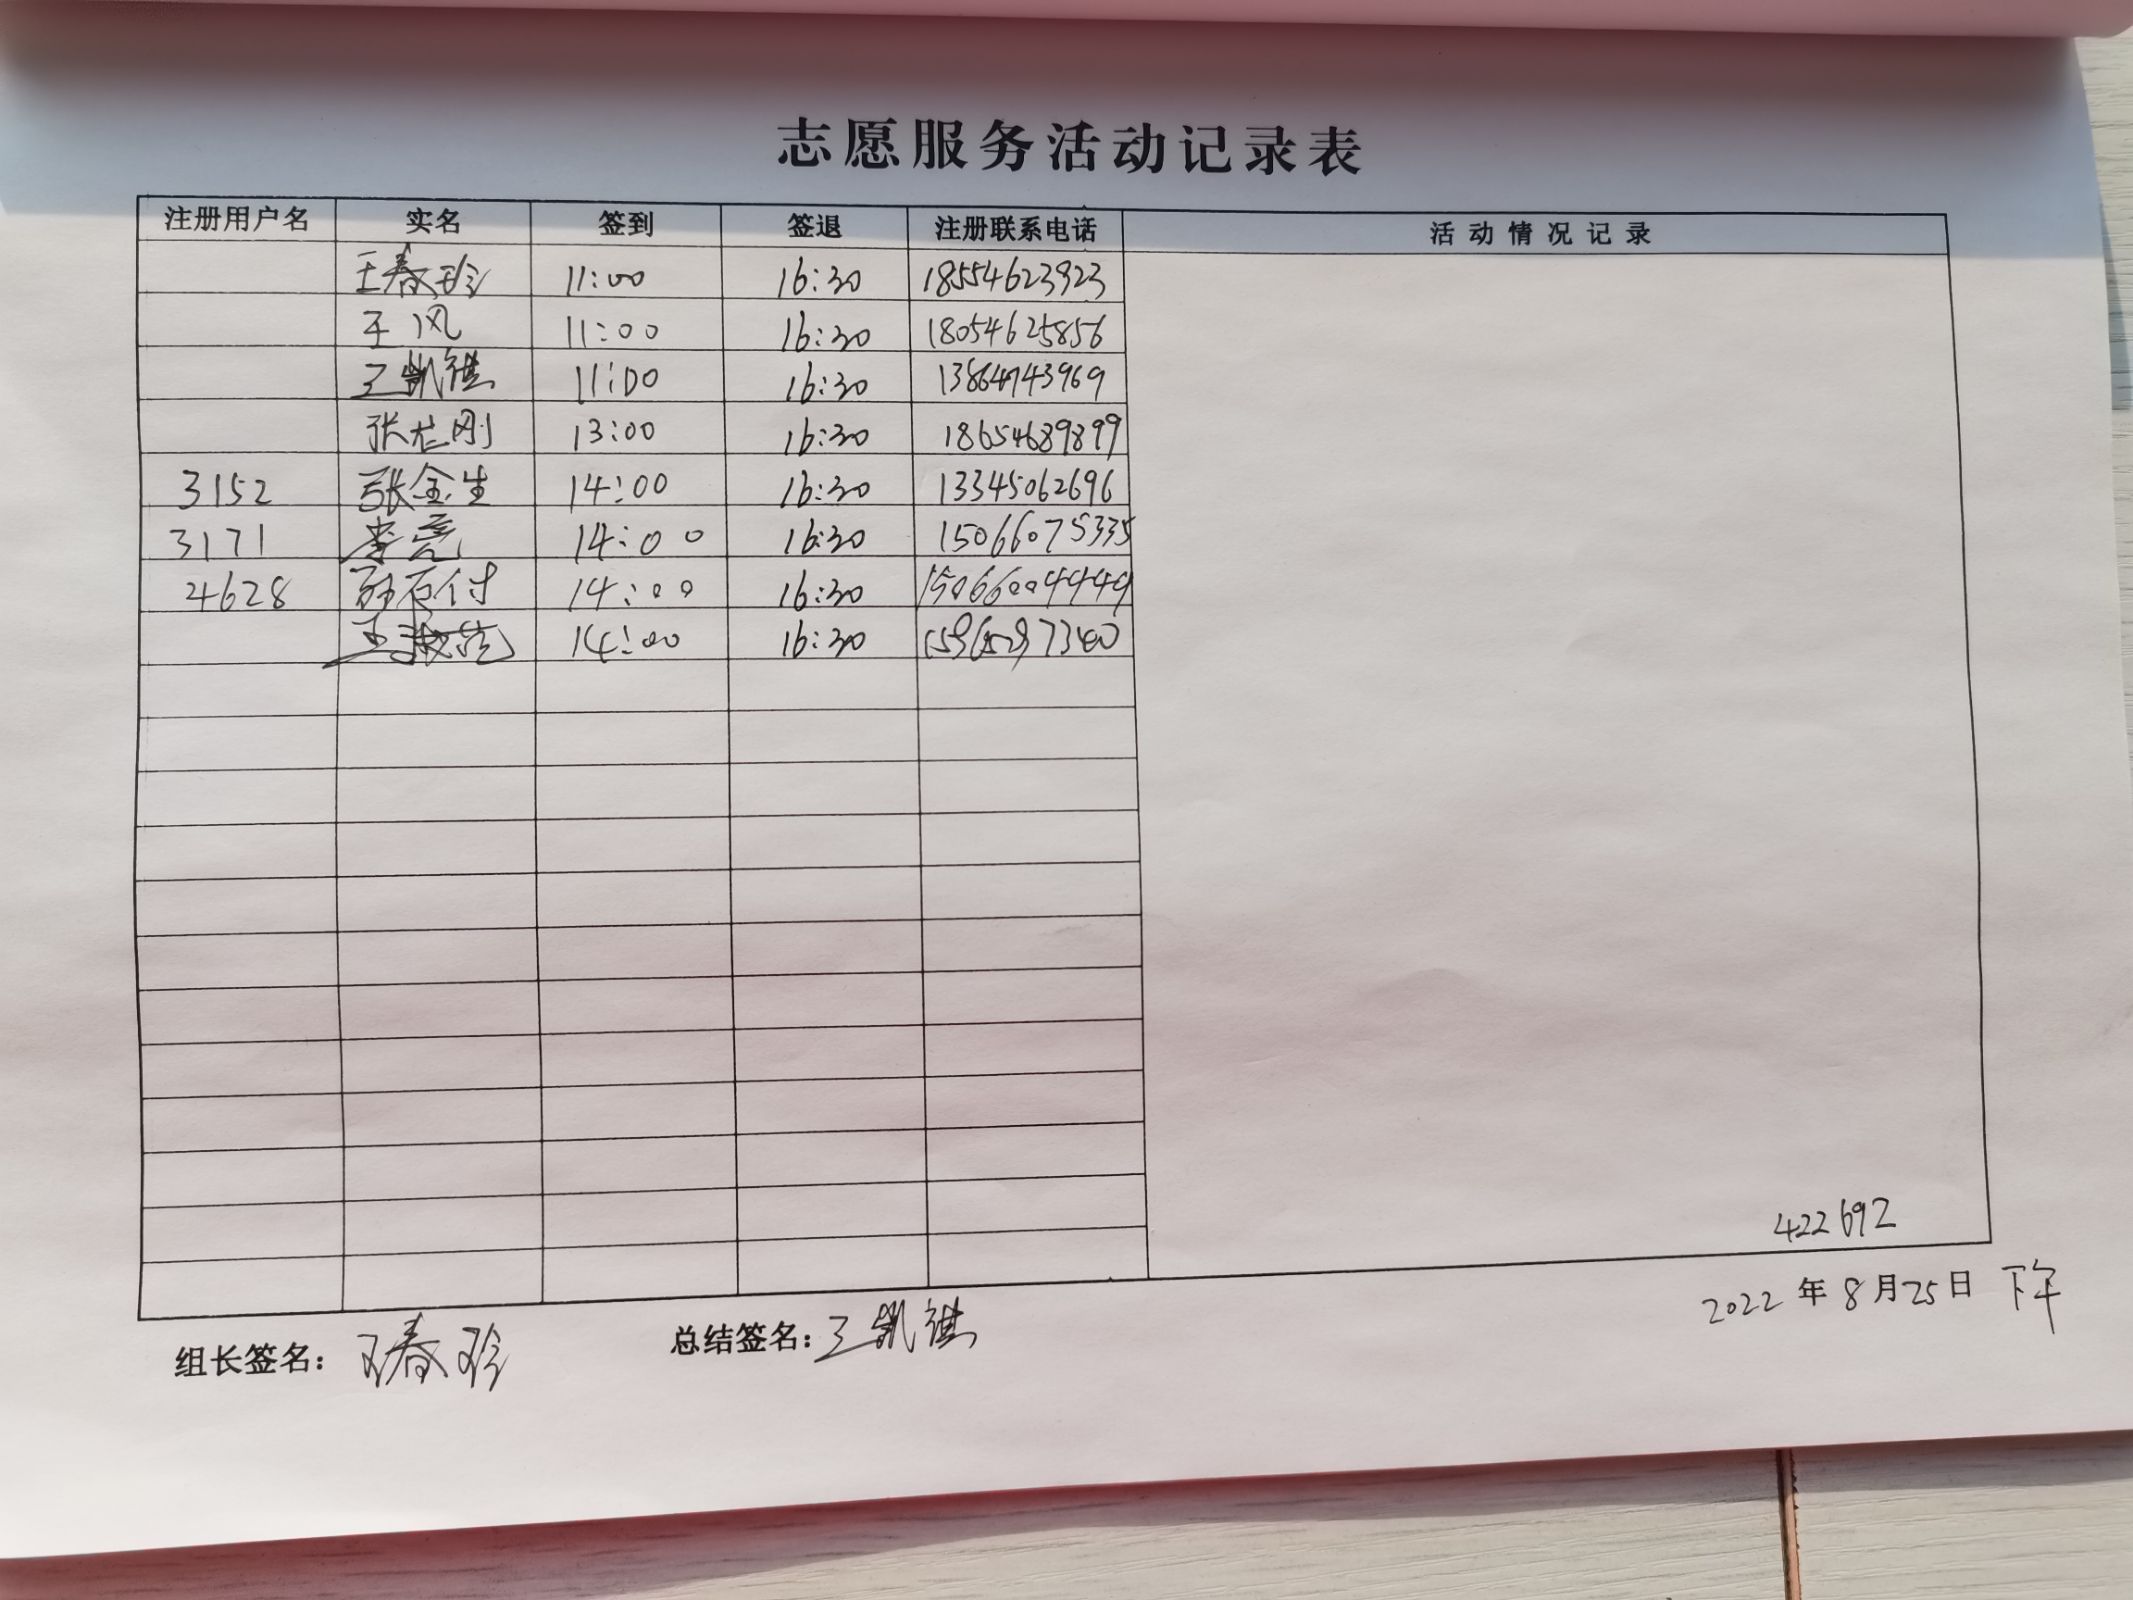 志愿服务活动记录表
注册用户名 实名 签到 签退 注册联系电话 活动情况记录
王春珍 11:00 16:30 18554623923
王风 11:00 16:30 18054625856
王凯祺 11:00 16:30 13864743969
张志刚 13:00 16:30 18654689899
3152 张金生 14:00 16:30 13345062696
3171 李亮 14:00 16:30 15066075335
4628 14:00 16:30 15066004449
14:00 16:30
422692
2022年8月25日 下午
组长签名: 王春珍 总结签名: 王凯祺